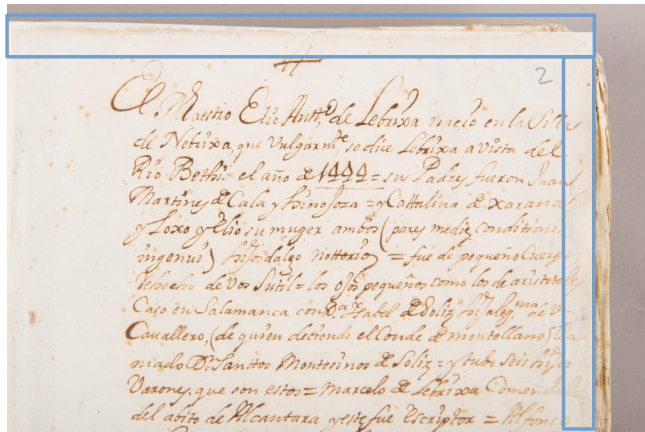 2
El Maestro Elio Antt.º de Lebrixa nacio en la Villa
de Nebrixa, que vulgarm.te se dice Lebrixa a vista del
Rio Bethis el año de 1444 = sus Padres fueron Juan
Martines de Cala y Hinojoza = y Cattalina de xarana
y Loxo y Elio su muger ambos (pares medie conditionis
ingenui) hijosdalgo nottorios = fue de pequeño Cuerpo
de vos Sutil = los ojos pequeños como los de
Caso en Salamanca con D.ª Isabel de Soliz hija leg.ma de v
Cavallero, (de quien deciende el Conde de montellano) lla
mado D. Santtos Montesinos de Soliz = y tubo seis hijos
Varones, que son estos = Marcelo de Lebrixa Comendador
del abito de Alcantara y este fue Escriptor = Alfonso